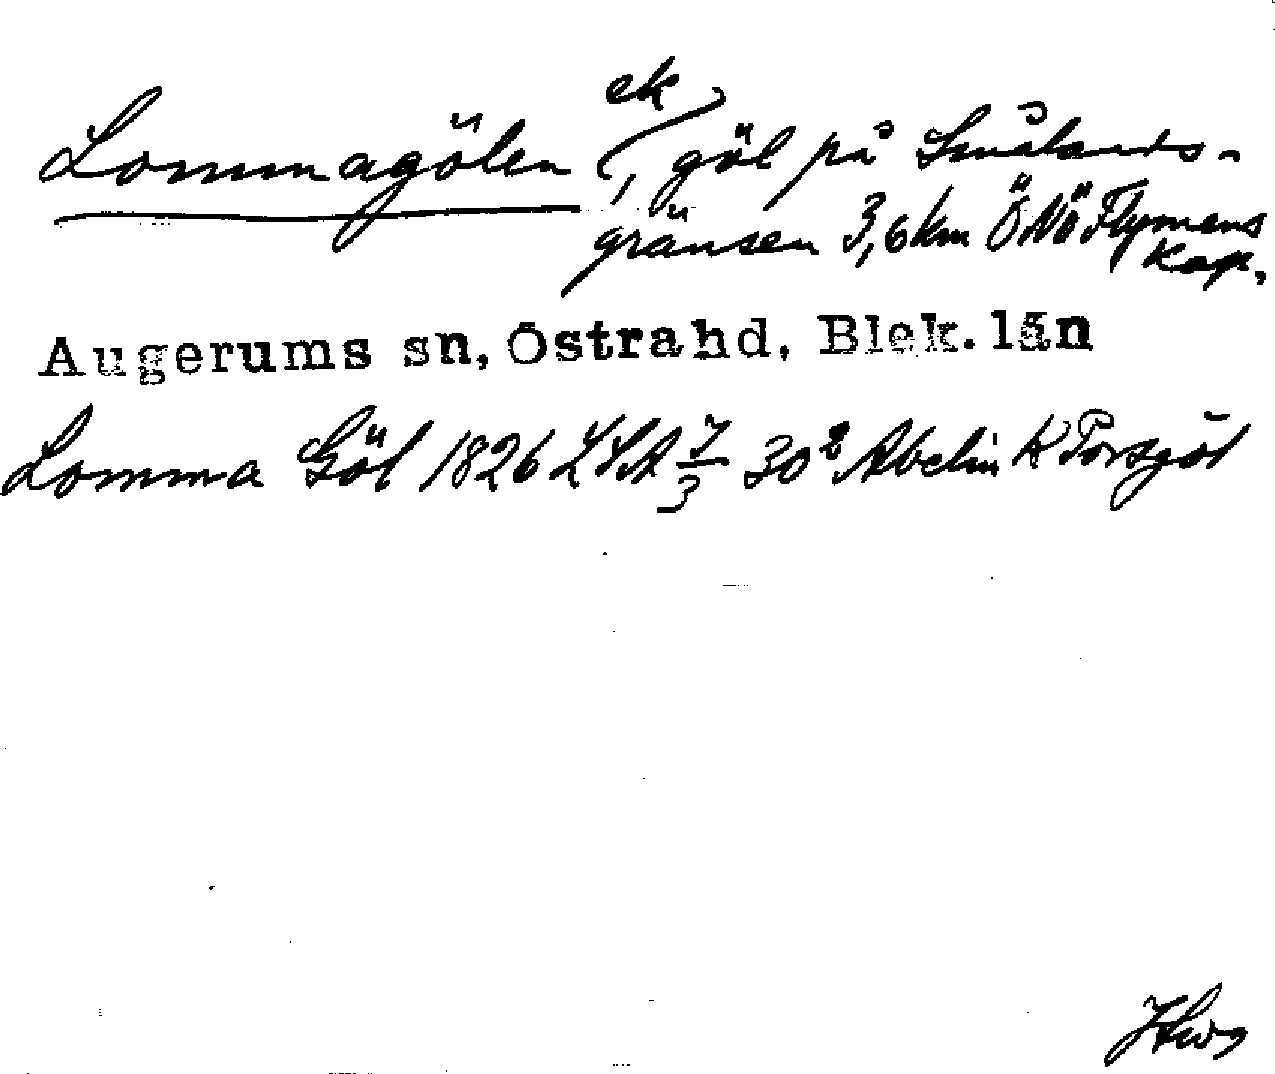 Lommagölen ek, göl på Smålands-
gränsen 3,6 km ÖNÖ Flymens
kap.
Augerums sn, Östra hd, Blek. län
Lomma Göl 1826 LSA 7/3 30² Abelin K Torsjöt